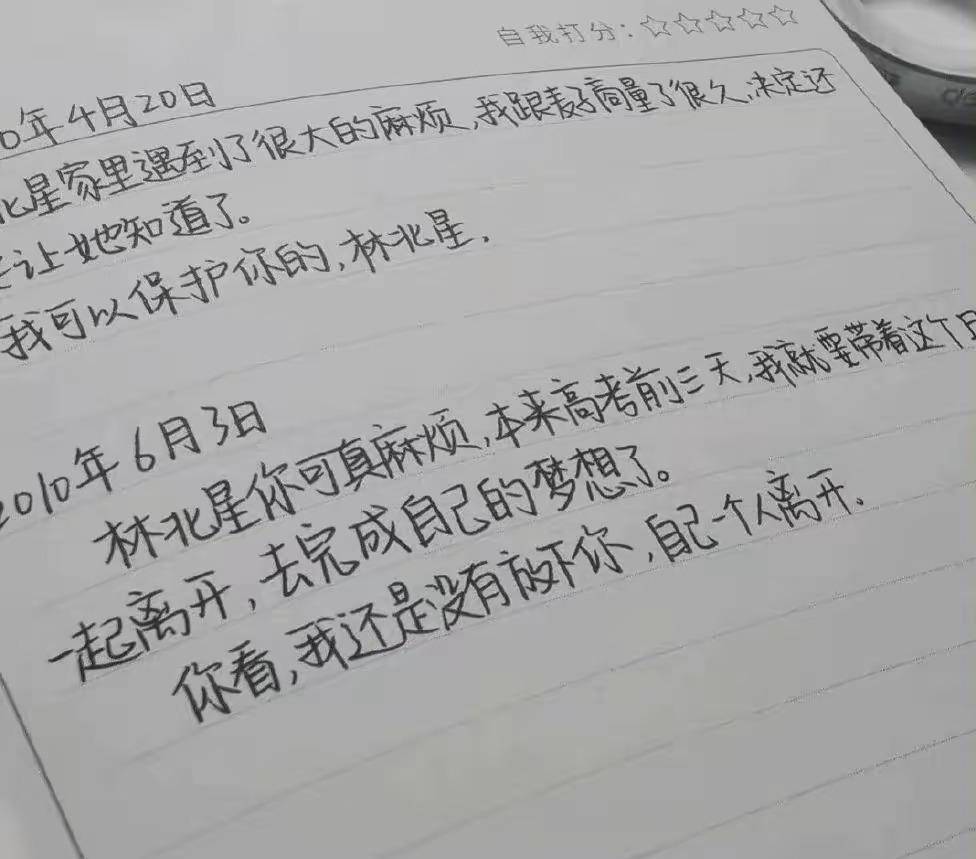 自我打分:☆☆☆☆☆
0年4月20日
北星家里遇到了很大的麻烦,我跟麦子商量了很久,决定还
让她知道了。
我可以保护你的,林北星.
2010年6月3日
林北星你可真麻烦,本来高考前三天,我就要带着这个日
一起离开,去完成自己的梦想了。
你看,我还是没有放下你,自己一个人离开.